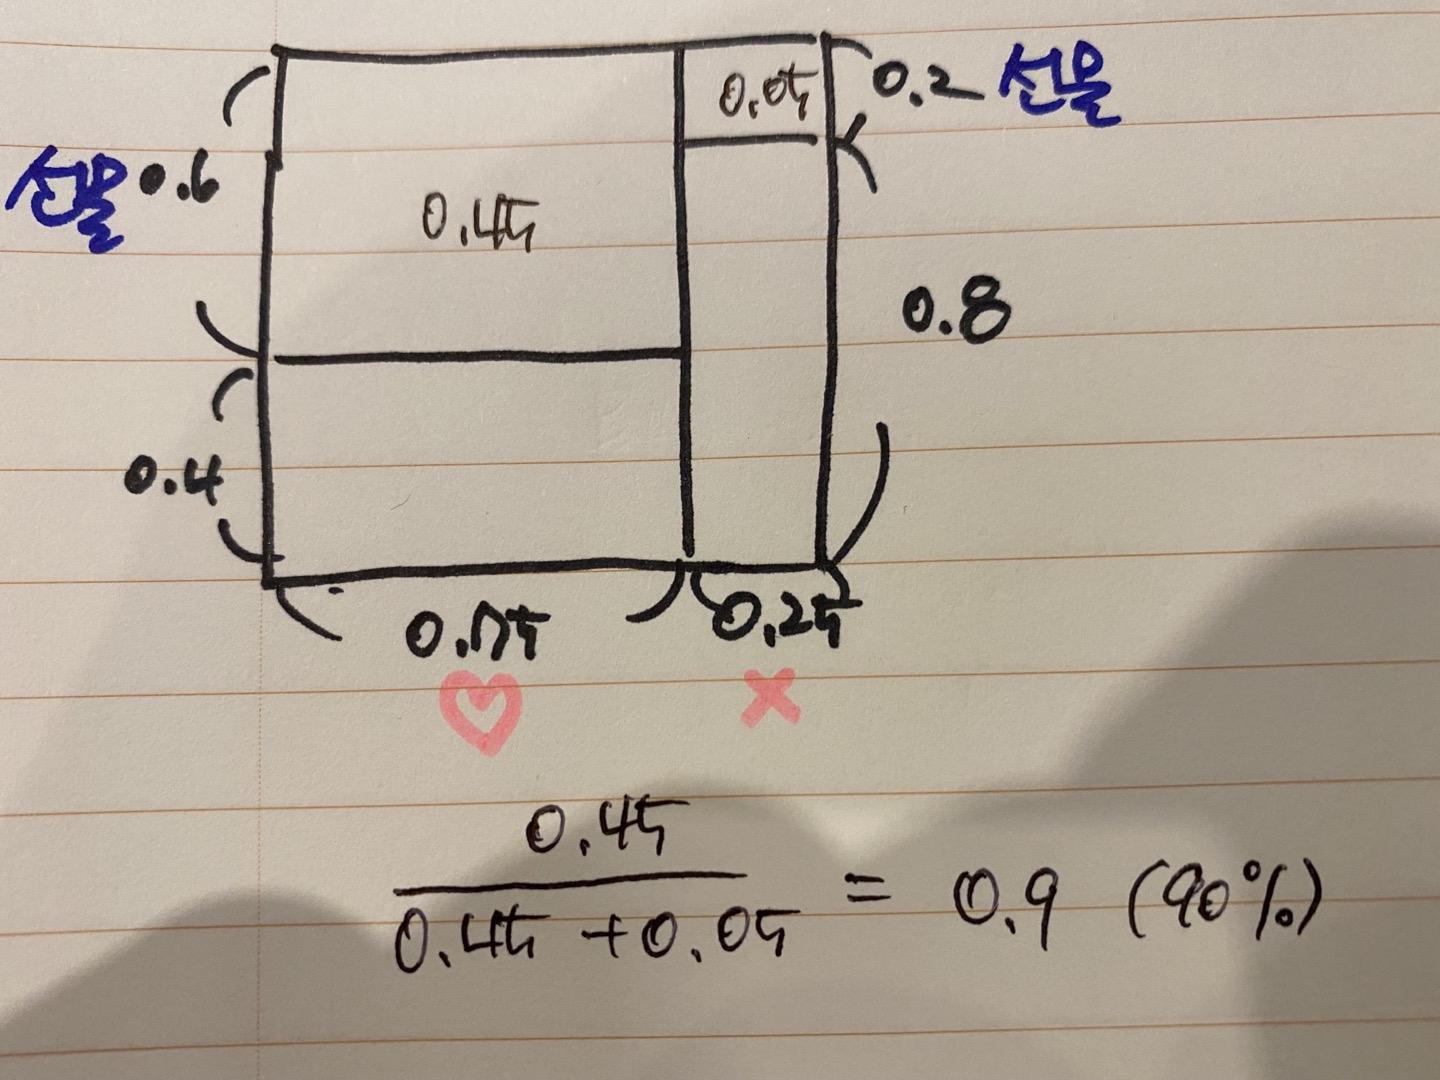 0.05
0.2 선물
선물 0.6
0.45
0.8
0.4
0.75
0.25
♡ ×
0.45
0.45 + 0.05
= 0.9 (90%)